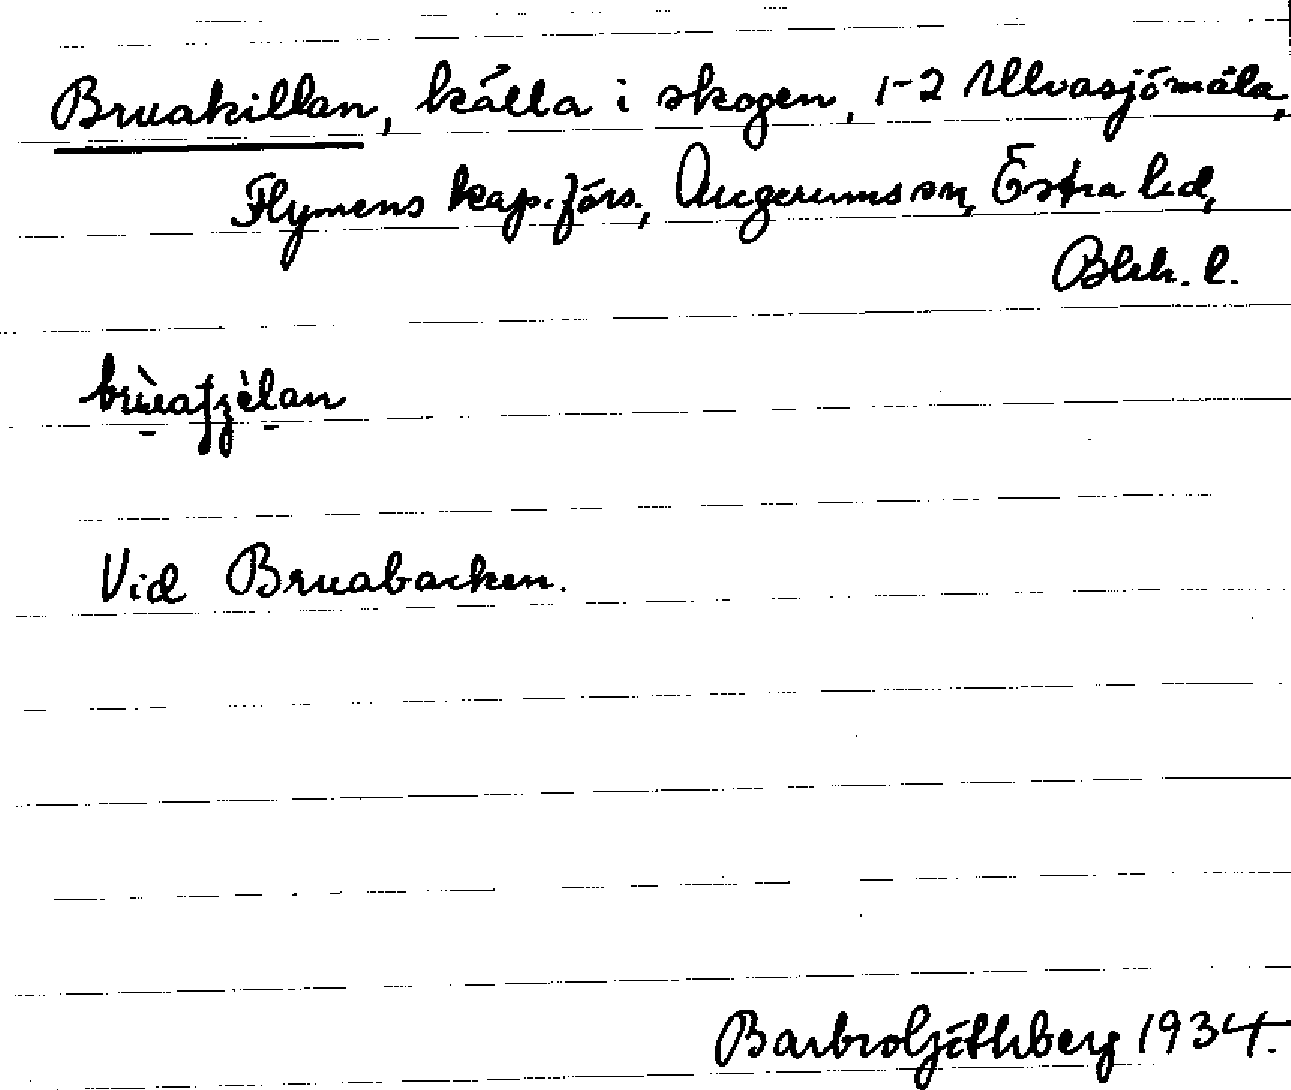 Bruakillan, källa i skogen, 1-2 Ullvasjömåla,
Flymens kap.förs., Augerums sn, Östra hd,
Blek. l.
Vid Bruabacken.
Barbro Göthberg 1934.